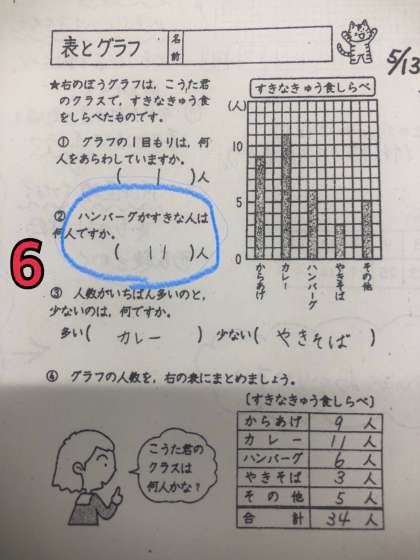 表とグラフ
名前
5/13
★右のぼうグラフは，こうた君
のクラスで，すきなきゅう食
をしらべたものです。
① グラフの1目もりは，何
人をあらわしていますか。
( 1 )人
② ハンバーグがすきな人は
何人ですか。
( 11 )人
6
すきなきゅう食しらべ
(人)
10
5
0
からあげ
カレー
ハンバーグ
やきそば
その他
③ 人数がいちばん多いのと，
少ないのは，何ですか。
多い( カレー ) 少ない( やきそば )
④ グラフの人数を，右の表にまとめましょう。
こうた君の
クラスは
何人かな？
〔すきなきゅう食しらべ〕
からあげ 9 人
カレー 11 人
ハンバーグ 6 人
やきそば 3 人
その他 5 人
合計 34 人